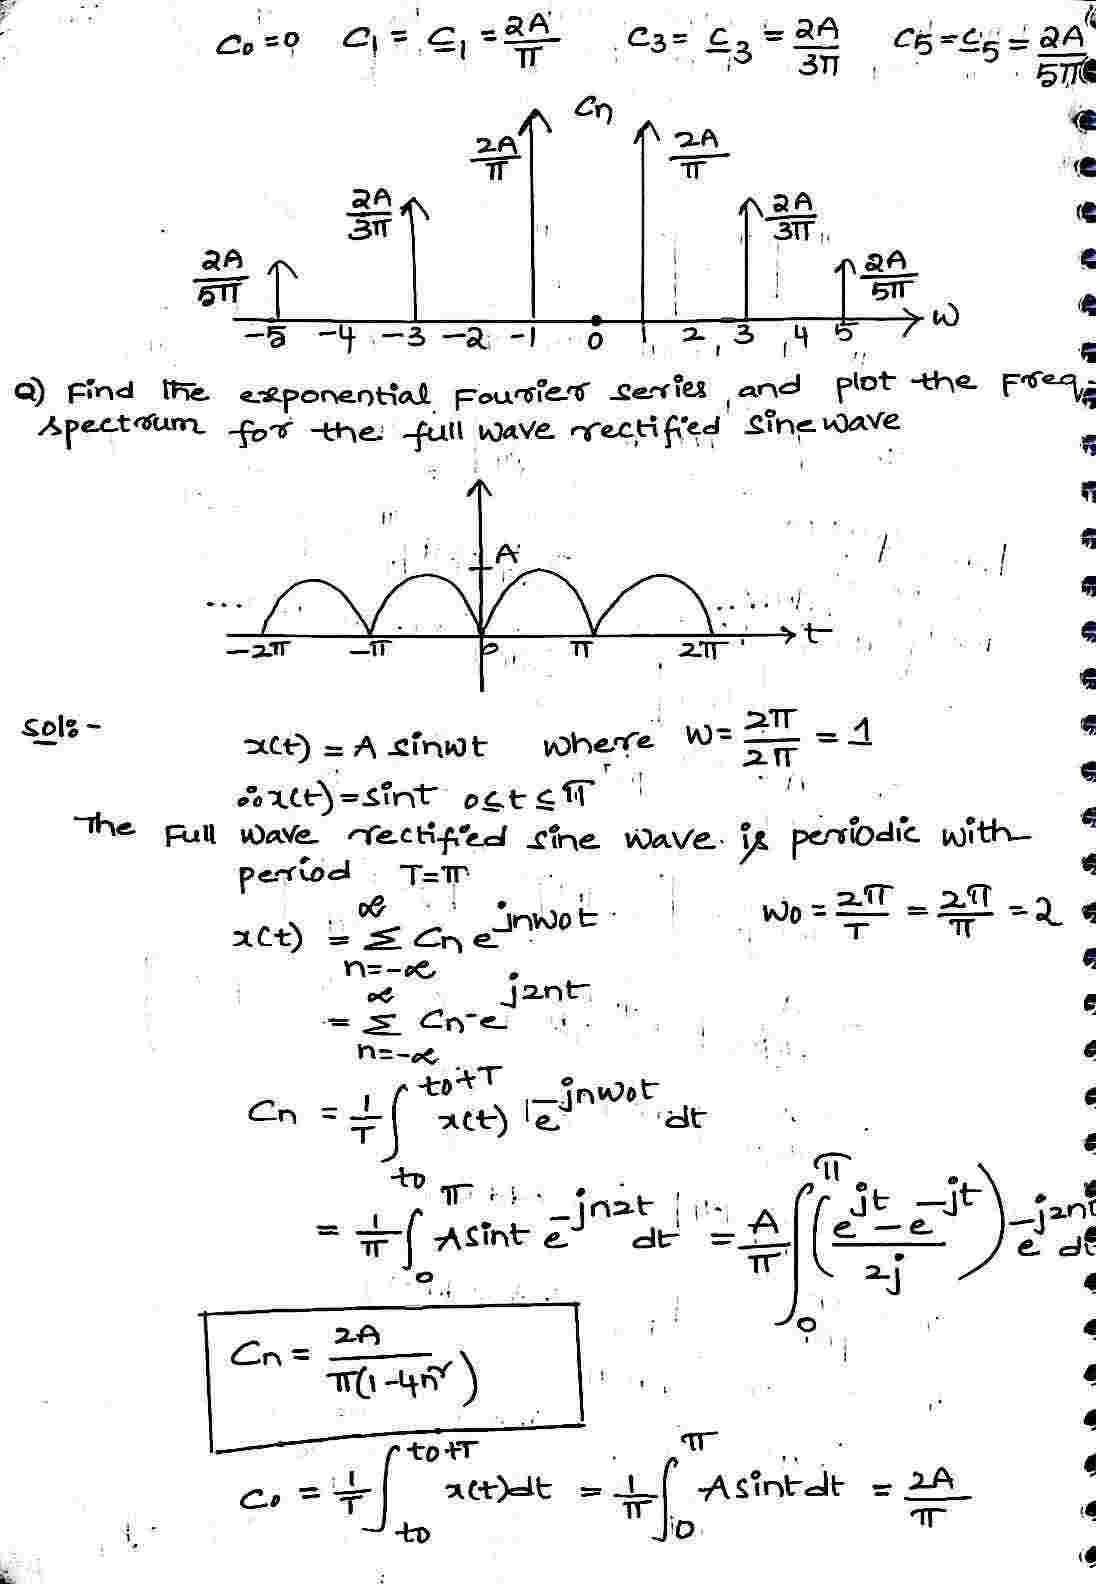 C0 = 0 C1 = C_1 = 2A/π , C3 = C_3 = 2A/3π , C5 = C_5 = 2A/5π
Cn
2A/π 2A/π
2A/3π 2A/3π
2A/5π 2A/5π
-5 -4 -3 -2 -1 0 1 2 3 4 5 w
Q) Find the exponential Fourier series and plot the Freq.
spectrum for the full wave rectified sine wave
A
... ...
-2π -π 0 π 2π t
Sol:-
x(t) = A sinwt where w = 2π/2π = 1
∴ x(t) = sint 0≤t≤π
The Full wave rectified sine wave is periodic with
period T=π
x(t) = ∑_{n=-∞}^{∞} Cn e^{jnw0t} w0 = 2π/T = 2π/π = 2
= ∑_{n=-∞}^{∞} Cn e^{j2nt}
Cn = 1/T ∫_{t0}^{t0+T} x(t) e^{-jnw0t} dt
= 1/π ∫_{0}^{π} A sint e^{-jn2t} dt = A/π ∫_{0}^{π} ((e^{jt} - e^{-jt})/2j) e^{-j2nt} dt
Cn = 2A/π(1-4n²)
C0 = 1/T ∫_{t0}^{t0+T} x(t)dt = 1/π ∫_{0}^{π} A sint dt = 2A/π